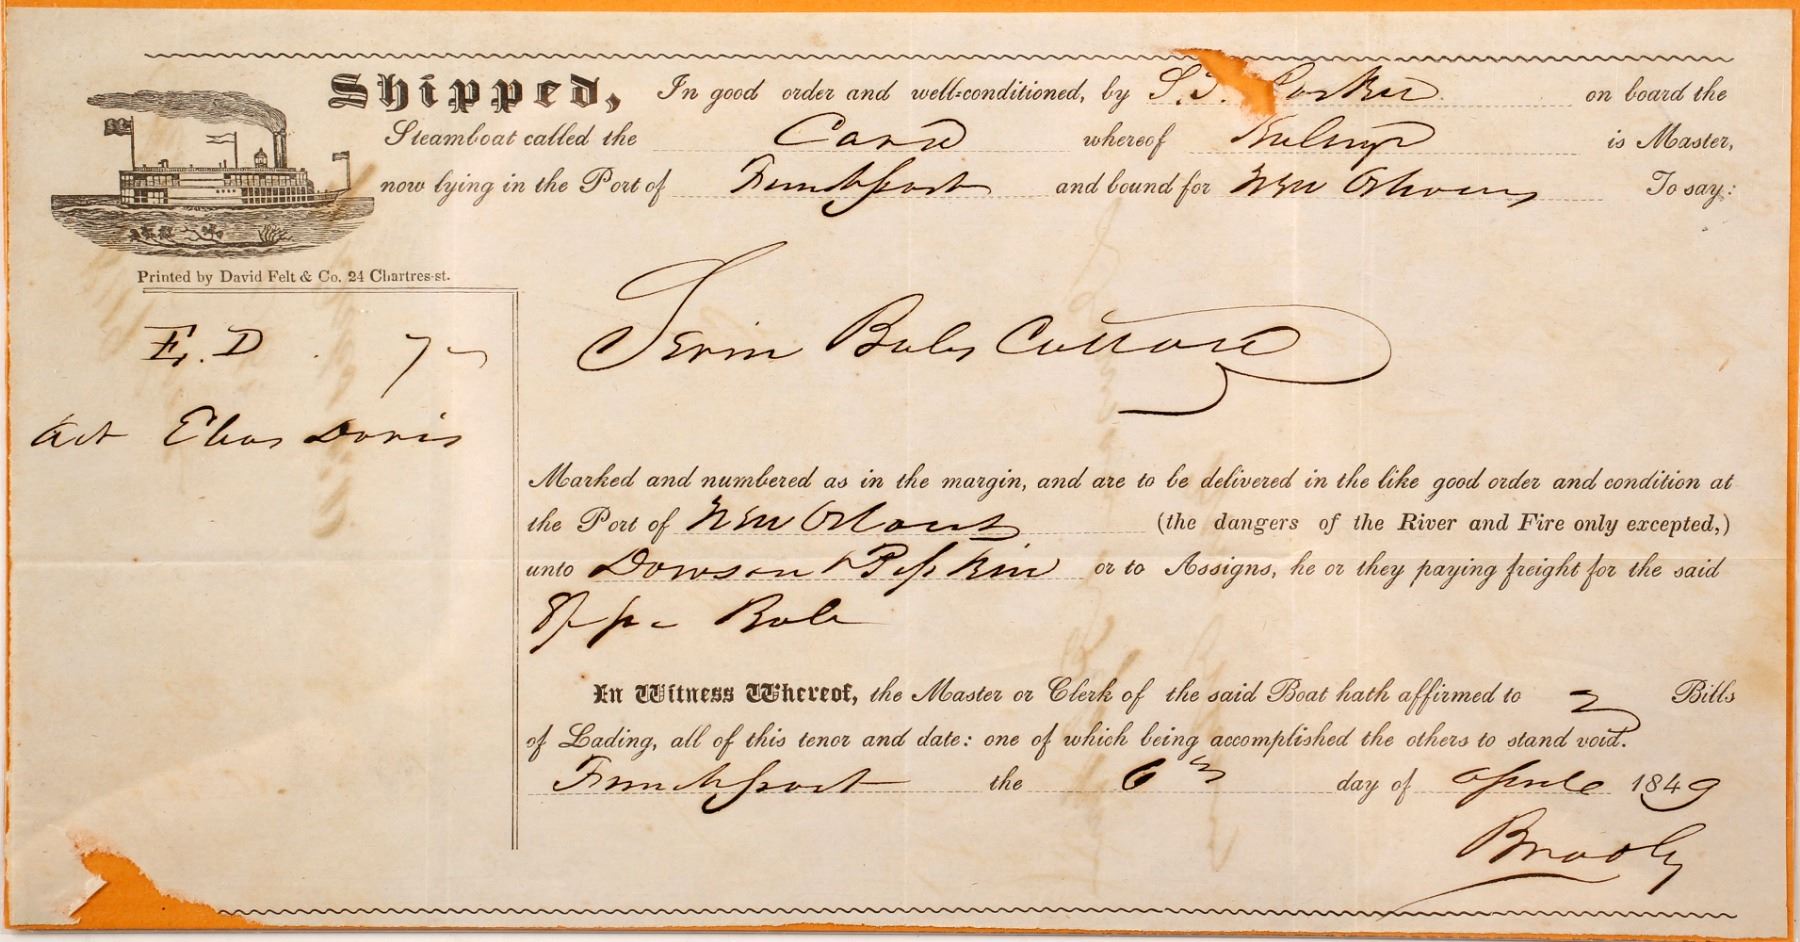 Shipped, In good order and well-conditioned, by S. S. Parker on board the
Steamboat called the whereof is Master,
now lying in the Port of Frenchport and bound for New Orleans To say:
Printed by David Felt & Co. 24 Chartres-st.
E. D. 7
Seven Bales Cotton
Act Elias Davis
Marked and numbered as in the margin, and are to be delivered in the like good order and condition at
the Port of New Orleans (the dangers of the River and Fire only excepted,)
unto Dawson & Pipkin or to Assigns, he or they paying freight for the said
Bale
In Witness Whereof, the Master or Clerk of the said Boat hath affirmed to Bills
of Lading, all of this tenor and date: one of which being accomplished the others to stand void.
Frenchport the 6 day of Aprile 1849